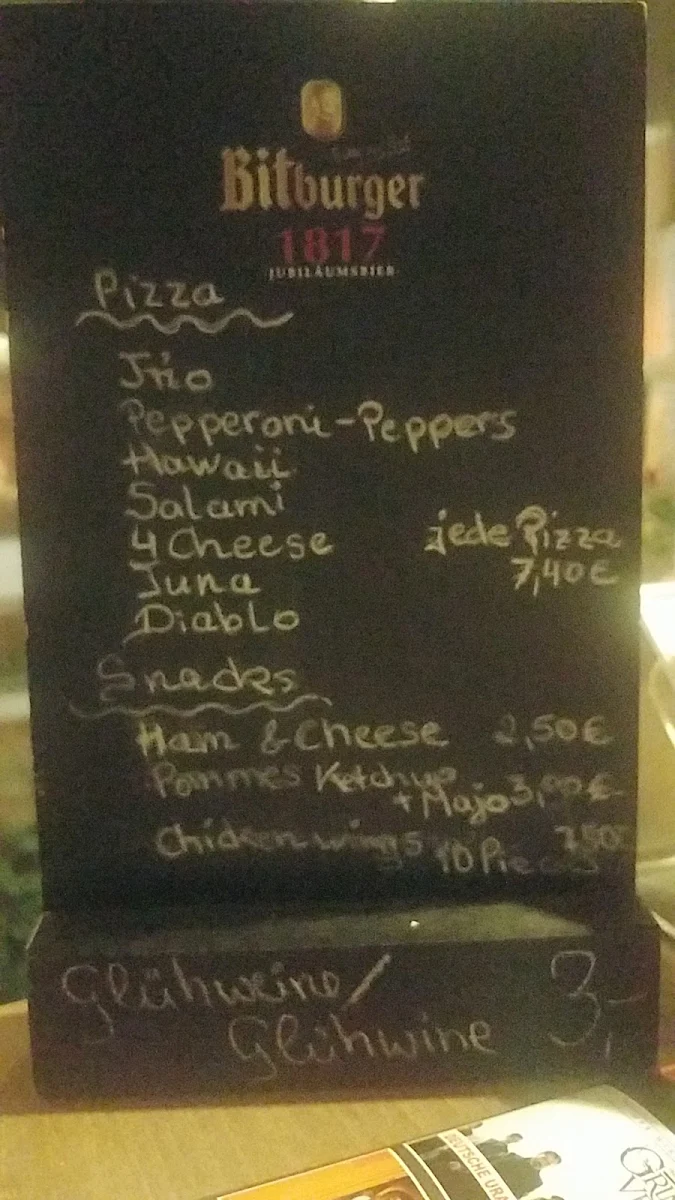 Bitburger
1817
JUBILÄUMSBIER
Pizza
Trio
Pepperoni-Peppers
Hawaii
Salami
4 Cheese
jede Pizza
Tuna
7,40€
Diablo
Snacks
Ham & Cheese 2,50€
Pommes Ketchup
+ Majo
Chicken wings 7,50
10 Pieces
Glühweine/
Glühwine 3,-
DEUTSCHE